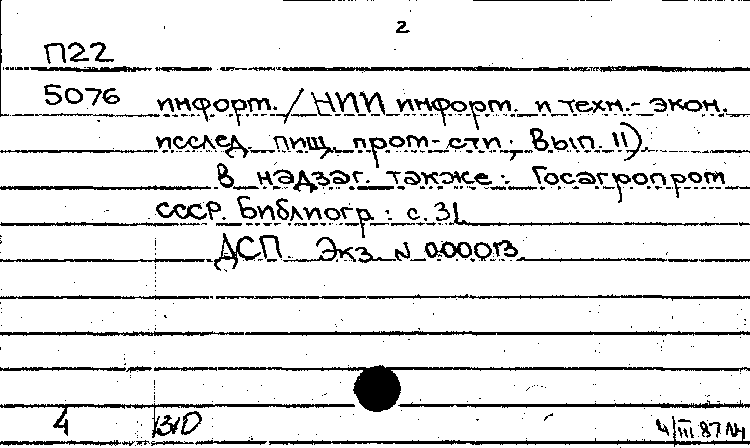 2
П22
5076 информ. / НИИ информ. и техн.-экон.
исслед. пищ. пром-сти; Вып. 11).
В надзаг. также: Госагропром
СССР. Библиогр.: с. 31.
ДСП Экз. N 000013.
4 4/III 87